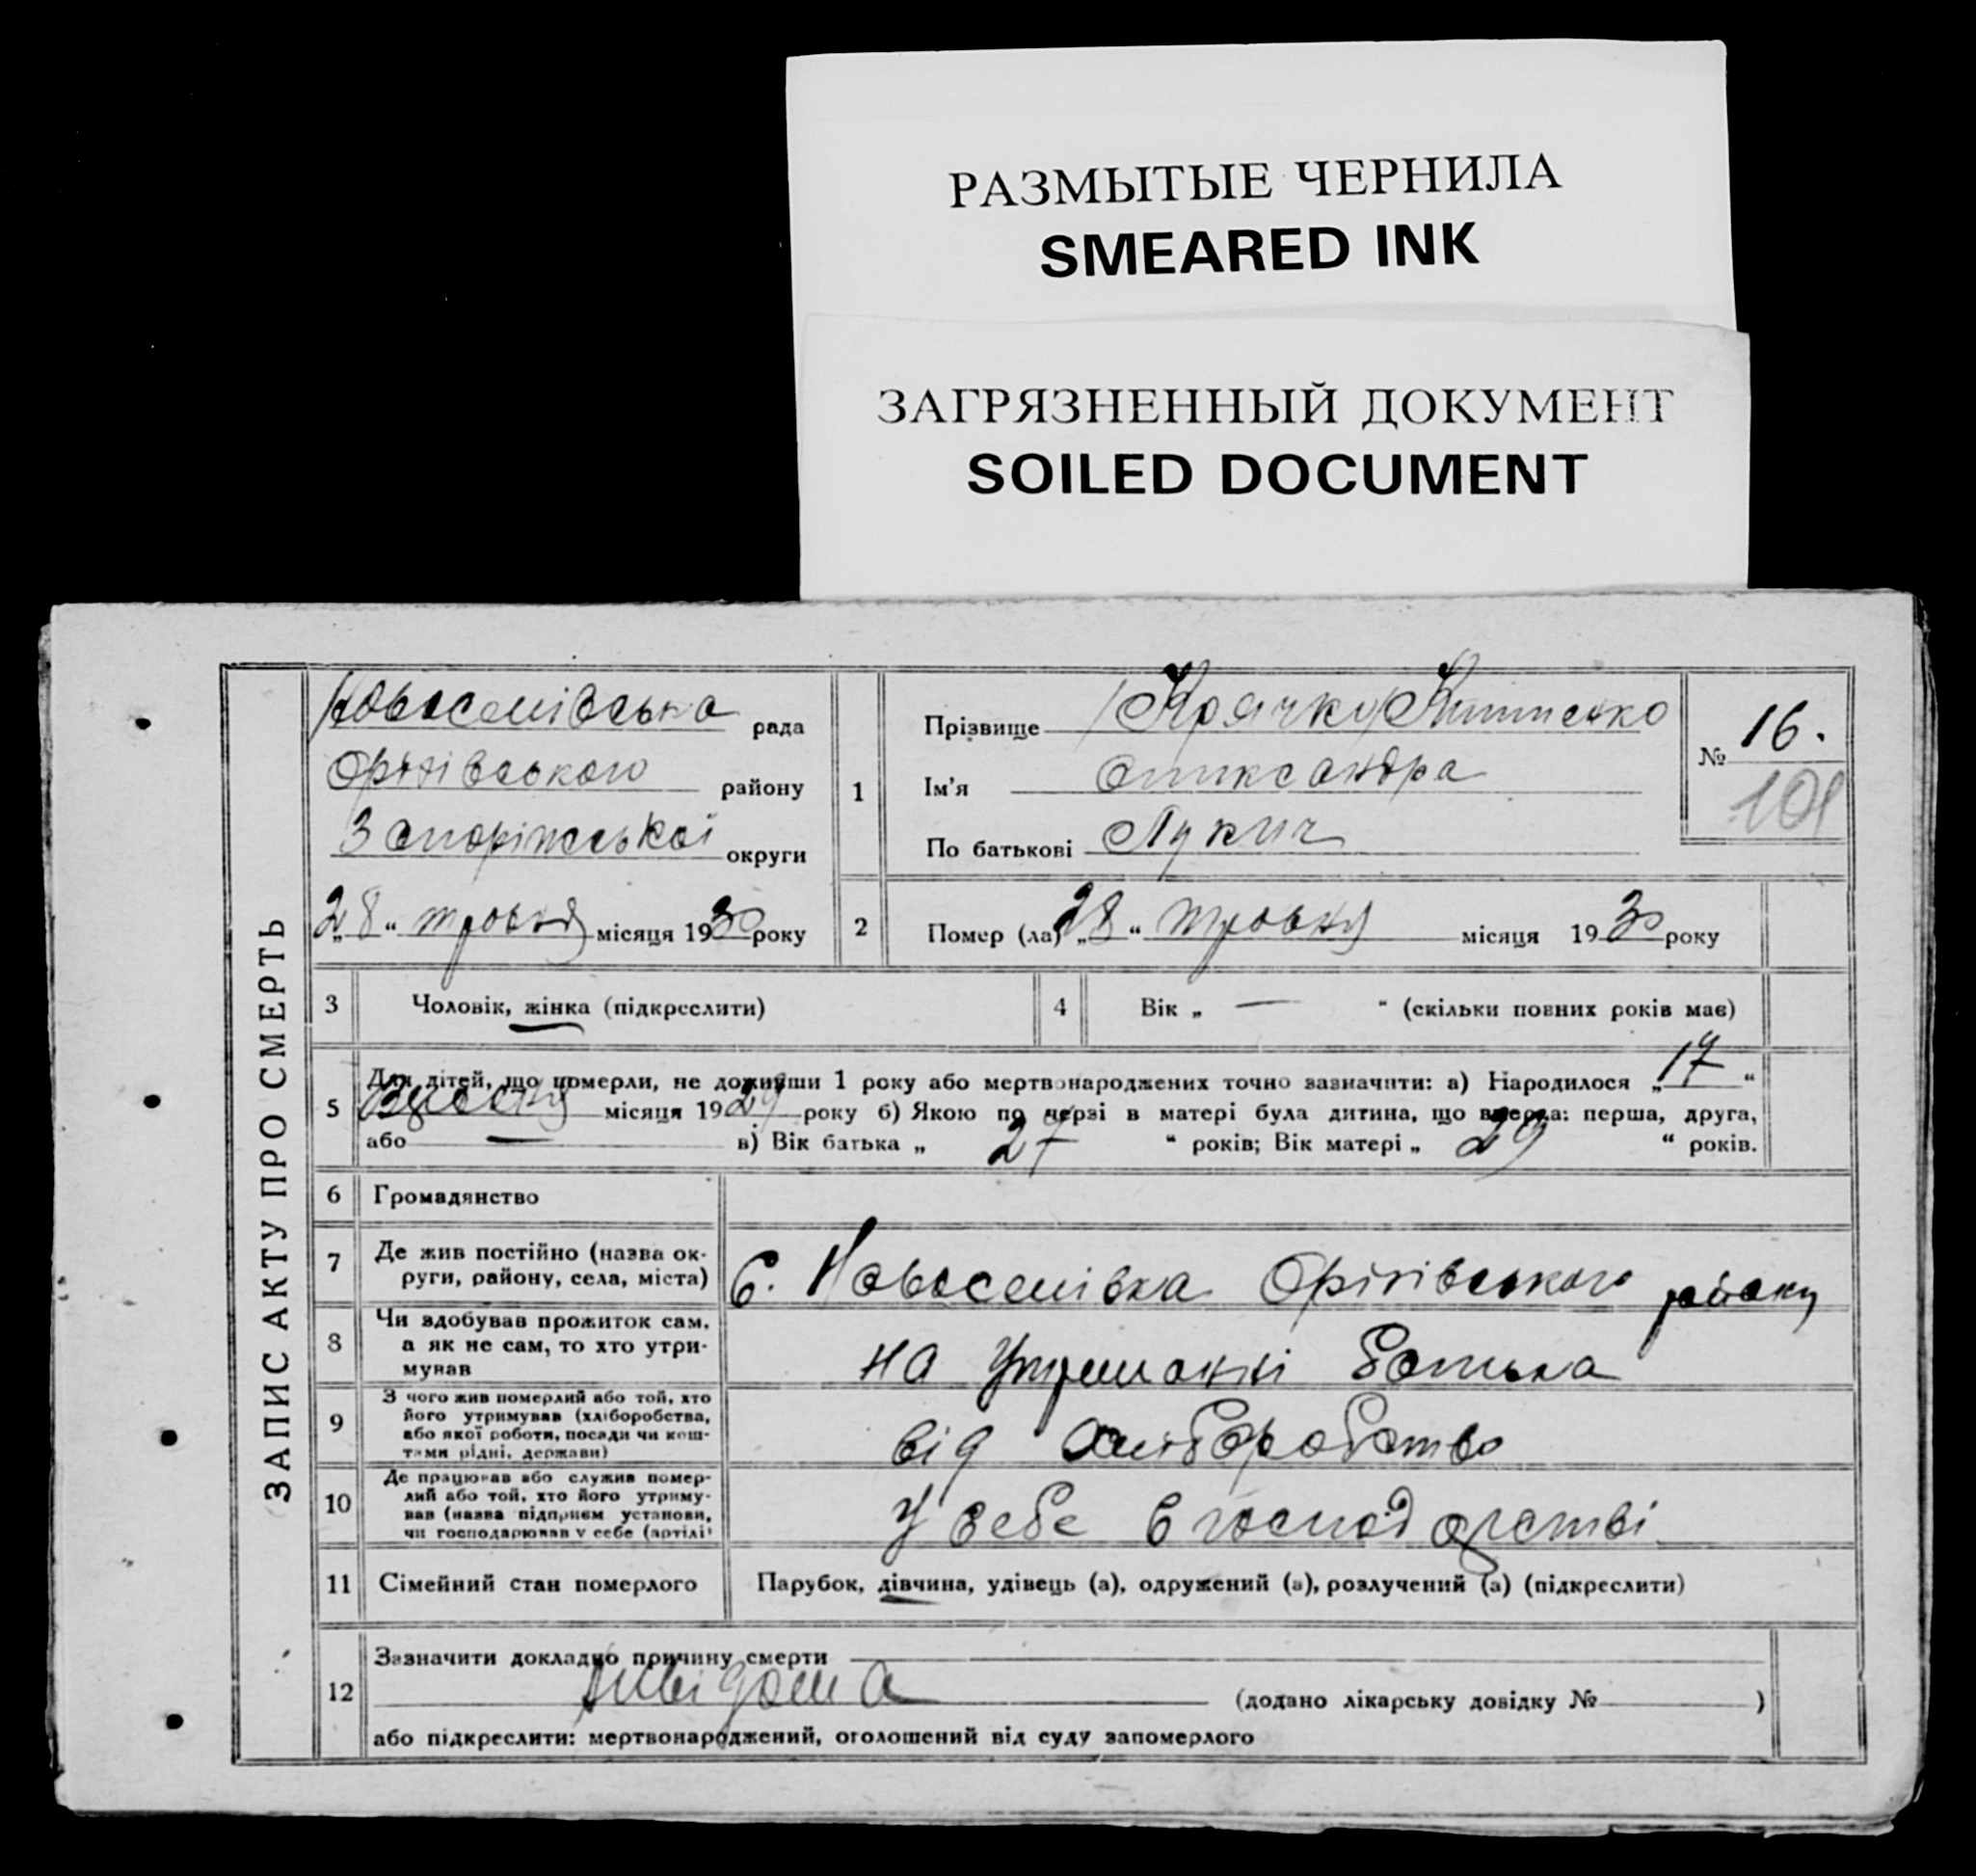 РАЗМЫТЫЕ ЧЕРНИЛА
SMEARED INK
ЗАГРЯЗНЕННЫЙ ДОКУМЕНТ
SOILED DOCUMENT
ЗАПИС АКТУ ПРО СМЕРТЬ
Новоселівська рада
Оріхівського району
Запоріжської округи
„28“ травня місяця 1930 року
1
Прізвище Крячко
Ім'я Олександра
По батькові Лукич
№ 16.
101
2
Помер (ла) „28“ травня місяця 1930 року
3 Чоловік, жінка (підкреслити)
4 Вік „ — “ (скільки повних років має)
5 Для дітей, що померли, не доживши 1 року або мертвонароджених точно зазначити: а) Народилося „17“
місяця 1929 року б) Якою по черзі в матері була дитина, що вмерла: перша, друга,
або — в) Вік батька „ 27 “ років; Вік матері „ 29 “ років.
6 Громадянство
7 Де жив постійно (назва ок-
руги, району, села, міста)
С. Новоселівка Оріхівського району
8 Чи здобував прожиток сам,
а як не сам, то хто утри-
мував
на утриманні батька
9 З чого жив померлий або той, хто
його утримував (хліборобства,
або якої роботи, посади чи кош-
тами рідні, держави)
від хліборобства
10 Де працював або служив помер-
лий або той, хто його утриму-
вав (назва підприєм установи,
чи господарював у себе (артілі)
У себе в господарстві
11 Сімейний стан померлого Парубок, дівчина, удівець (а), одружений (а), розлучений (а) (підкреслити)
12 Зазначити докладно причину смерти
(додано лікарську довідку № )
або підкреслити: мертвонароджений, оголошений від суду запомерлого